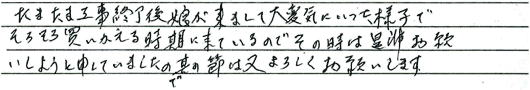 たまたま工事終了後娘が来まして大変気にいった様子で
そろそろ買いかえる時期に来ているのでその時は是非お願
いしようと申していましたので其の節は又よろしくお願いします